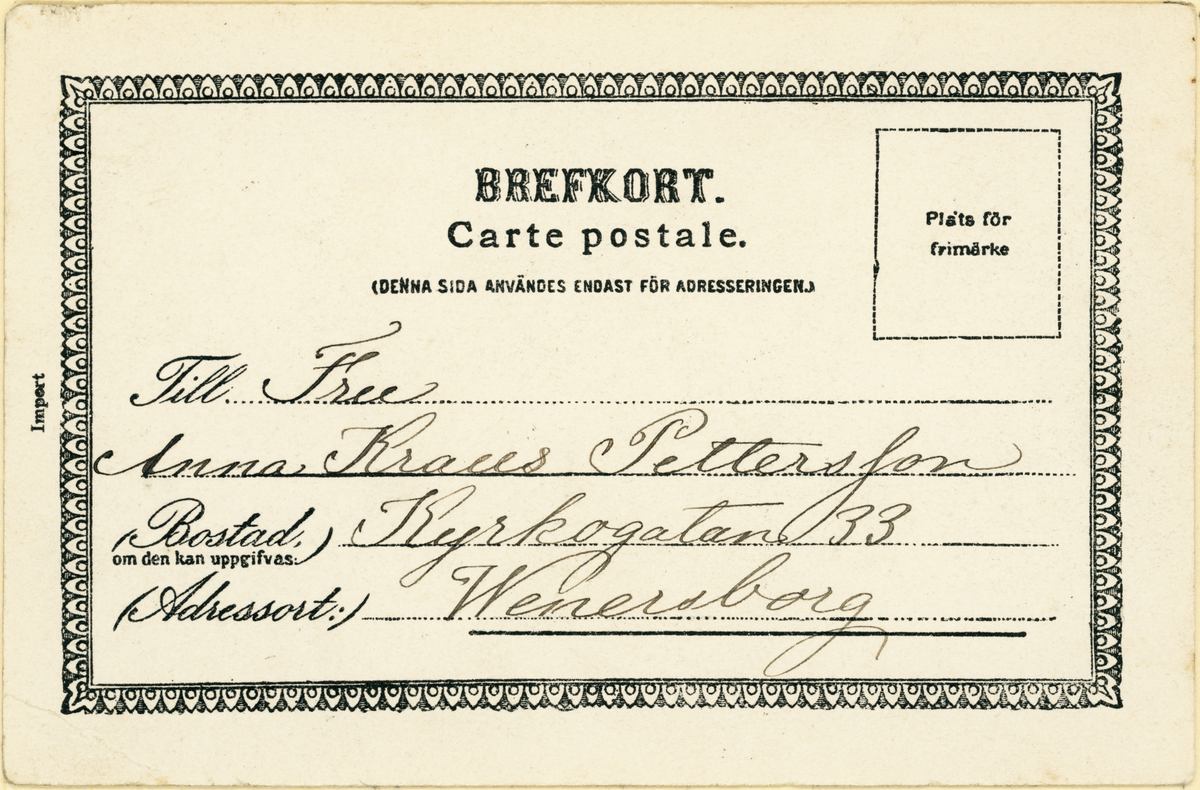 BREFKORT.
Carte postale.
(DENNA SIDA ANVÄNDES ENDAST FÖR ADRESSERINGEN.)
Plats för
frimärke
Import
Till Fru
Anna Kraus Pettersson
(Bostad.) Kyrkogatan 33
om den kan uppgifvas:
(Adressort:) Wenersborg